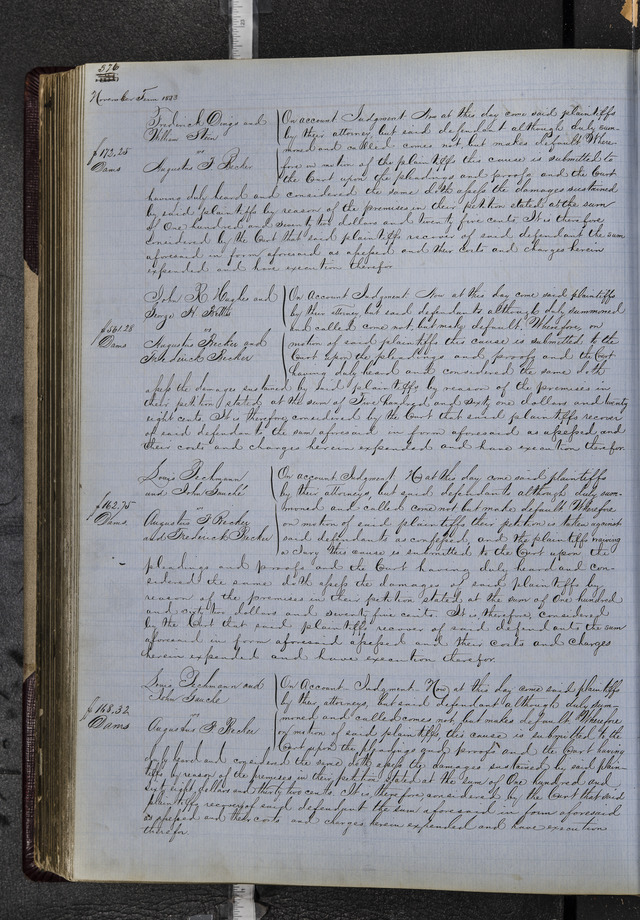 576
November Term 1873
Frederick Dings and
William Stein
vs
Augustus F Becker
$172,25
Dams
On account Judgment Now at this day come said plaintiffs
by their attorney, but said defendant although duly sum-
moned and called comes not but makes default Where
fore on motion of the plaintiffs this cause is submitted to
the Court upon the pleadings and proofs and the Court
having duly heard and considered the same doth assess the damages sustained
by said plaintiffs by reason of the premises in their petition stated at the sum
of One hundred and seventy two dollars and twenty five cents It is therefore
considered by the Court that said plaintiffs recover of said defendant the sum
aforesaid in form aforesaid as assessed and their costs and charges herein
expended and have execution therefor
John R Hughes and
H
vs
Augustus Becker and
Frederick Becker
$561.28
Dams
On account Judgment Now at this day come said plaintiffs
by their attorney, but said defendants although duly summoned
and called come not but make default Wherefore, on
motion of said plaintiffs this cause is submitted to the
Court upon the pleadings and proofs and the Court
having duly heard and considered the same doth
assess the damages sustained by said plaintiffs by reason of the premises in
their petition stated at the sum of Five hundred and sixty one dollars and twenty
eight cents. It is therefore considered by the Court that said plaintiffs recover
of said defendants the sum aforesaid in form aforesaid as assessed and
their costs and charges herein expended and have execution therefor.
Louis Pechmann
and John
vs
Augustus F Becker
and Frederick Becker
$162.75
Dams
On account Judgment. Now at this day come said plaintiffs
by their attorneys, but said defendants although duly sum-
moned and called come not but make default Wherefore
on motion of said plaintiffs their petition is taken against
said defendants as confessed, and the plaintiffs waiving
a Jury this cause is submitted to the Court upon the
pleadings and proofs and the Court having duly heard and con-
sidered the same doth assess the damages of said plaintiffs by
reason of the premises in their petition stated at the sum of One hundred
and sixty two dollars and seventy five cents It is therefore considered
by the Court that said plaintiffs recover of said defendants the sum
aforesaid in form aforesaid assessed and their costs and charges
herein expended and have execution therefor.
Louis Pechmann and
John
vs
Augustus F Becker
$168,32
Dams
On account Judgment. Now at this day come said plaintiffs
by their attorneys, but said defendant although duly sum-
moned and called comes not, but makes default Wherefore
on motion of said plaintiffs, this cause is submitted to the
Court upon the pleadings and proofs and the Court having
duly heard and considered the same doth assess the damages sustained by said plain-
tiffs by reason of the premises in their petition stated at the sum of One hundred and
sixty eight dollars and thirty two cents It is therefore considered by the Court that said
plaintiffs recover of said defendant the sum aforesaid in form aforesaid
as assessed and their costs and charges herein expended and have execution
therefor.